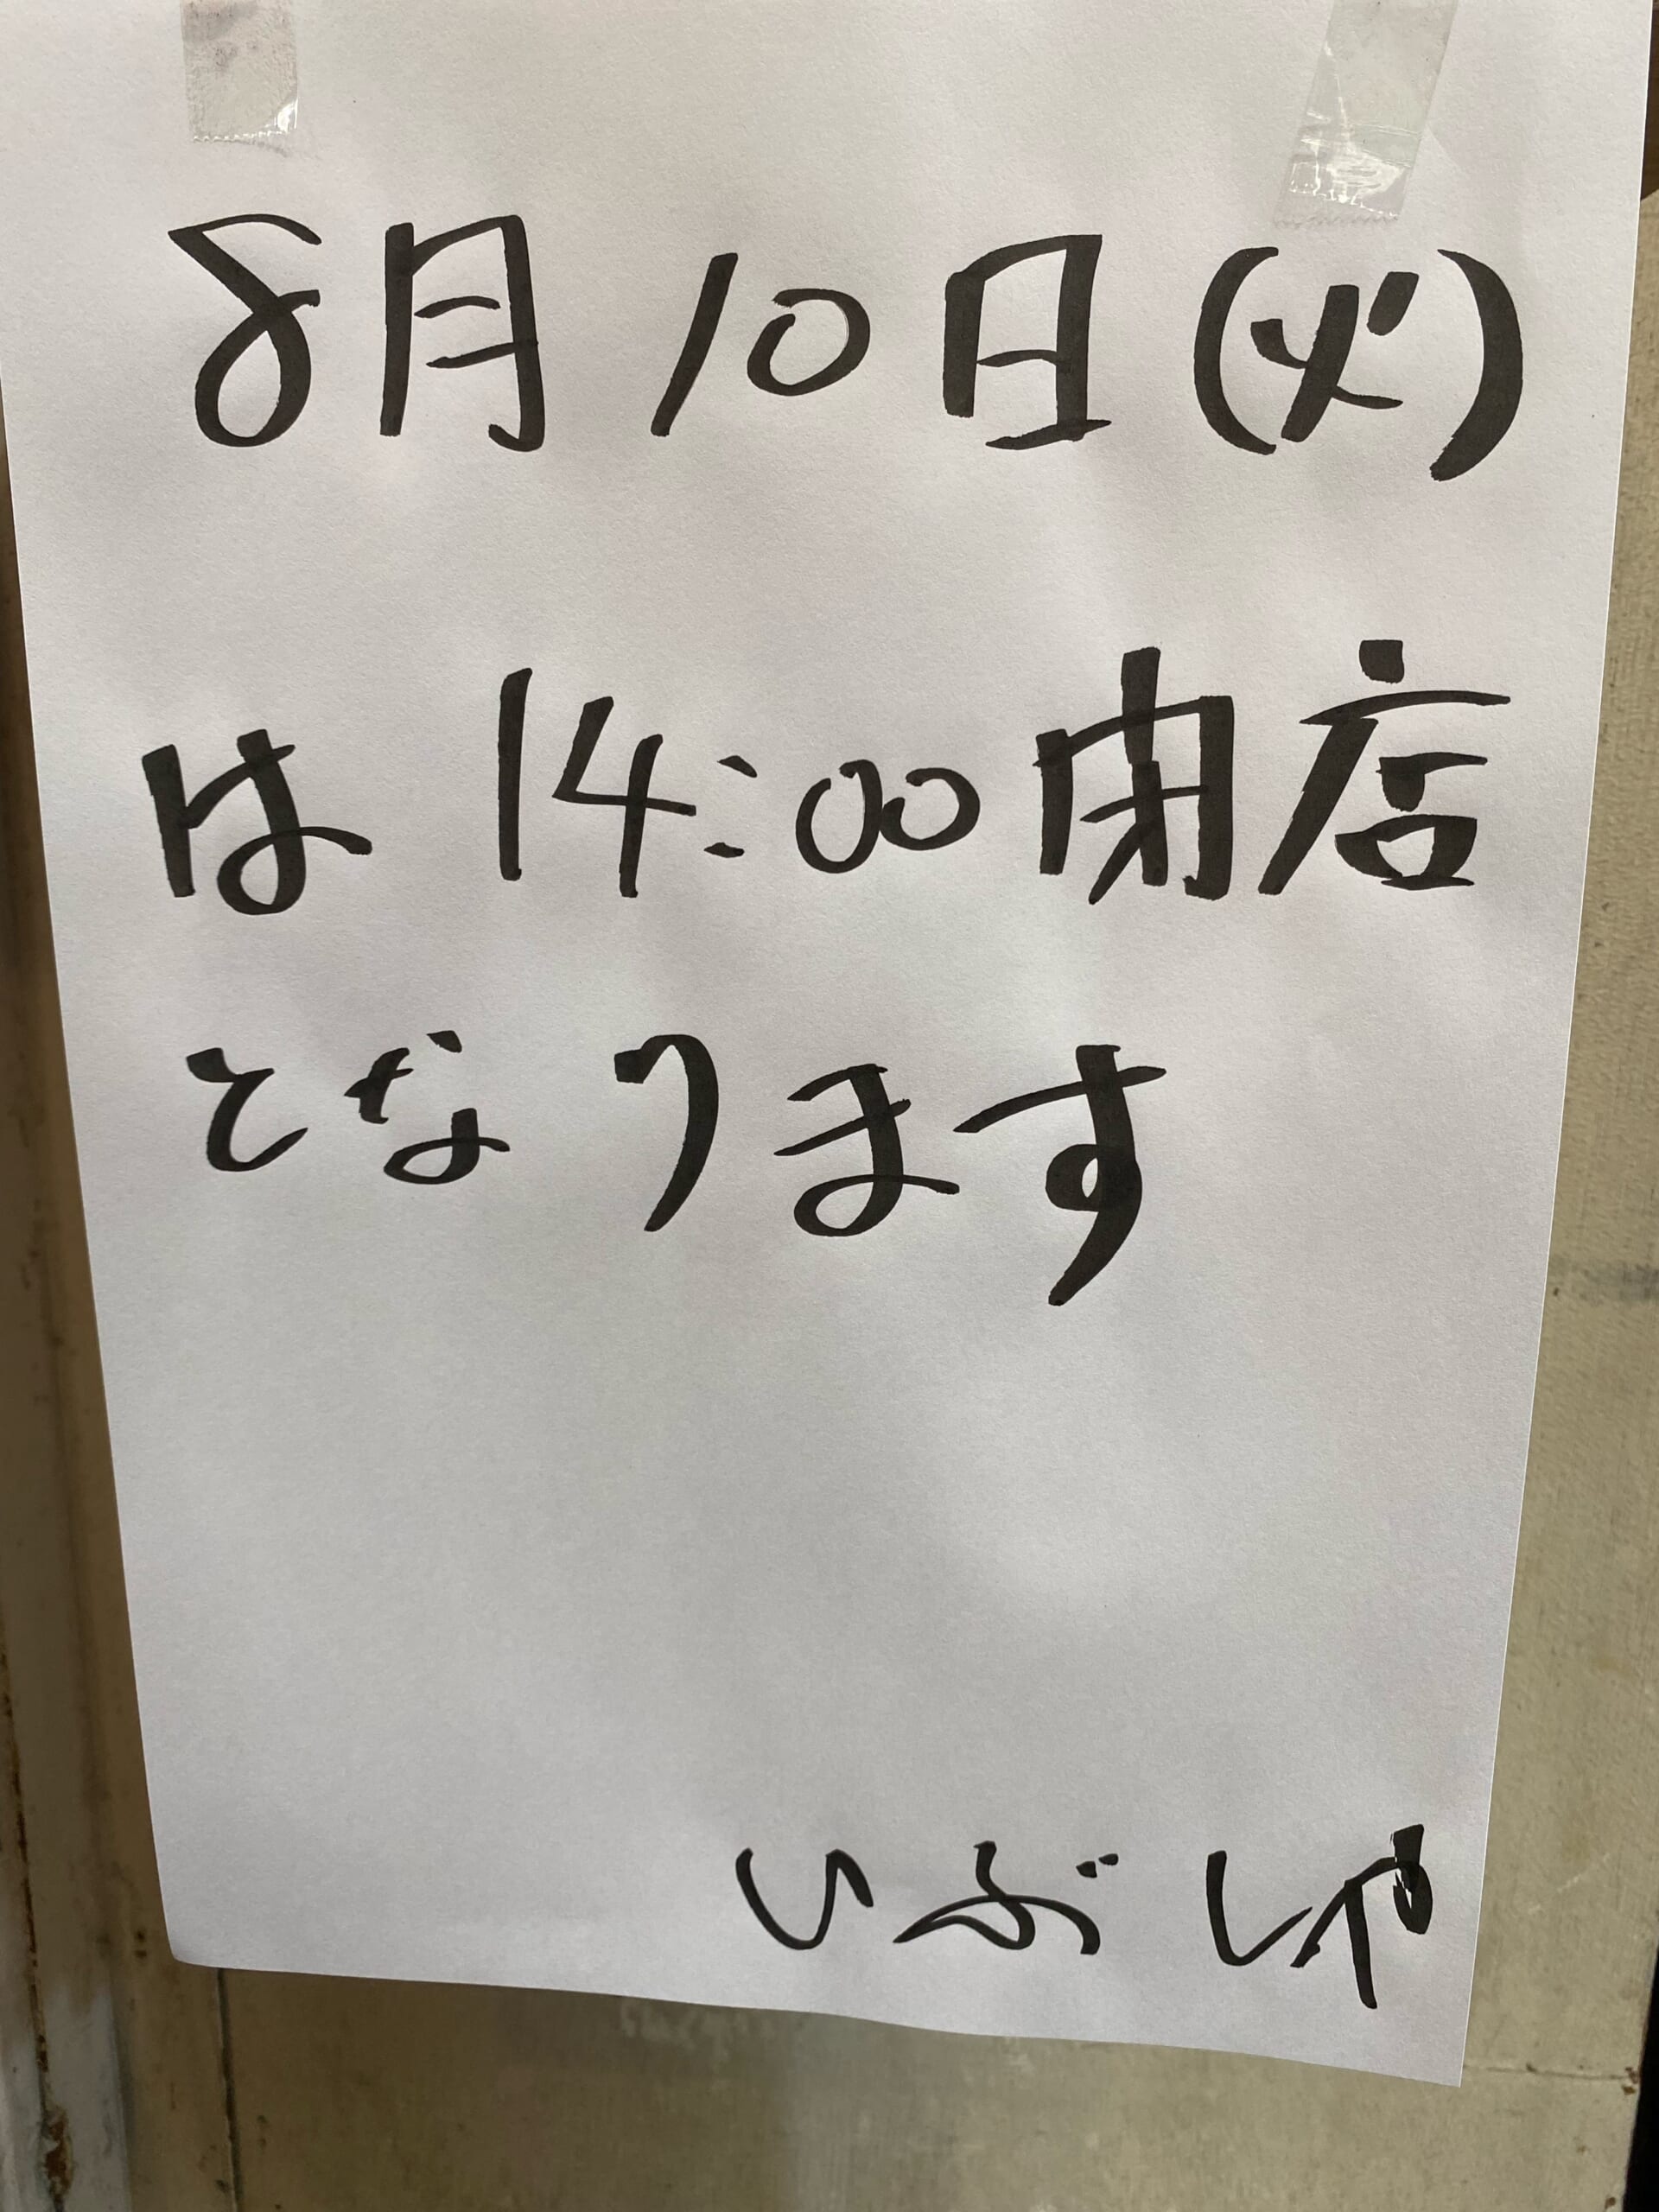 8月10日(火)
は 14:00閉店
となります
いぶしや